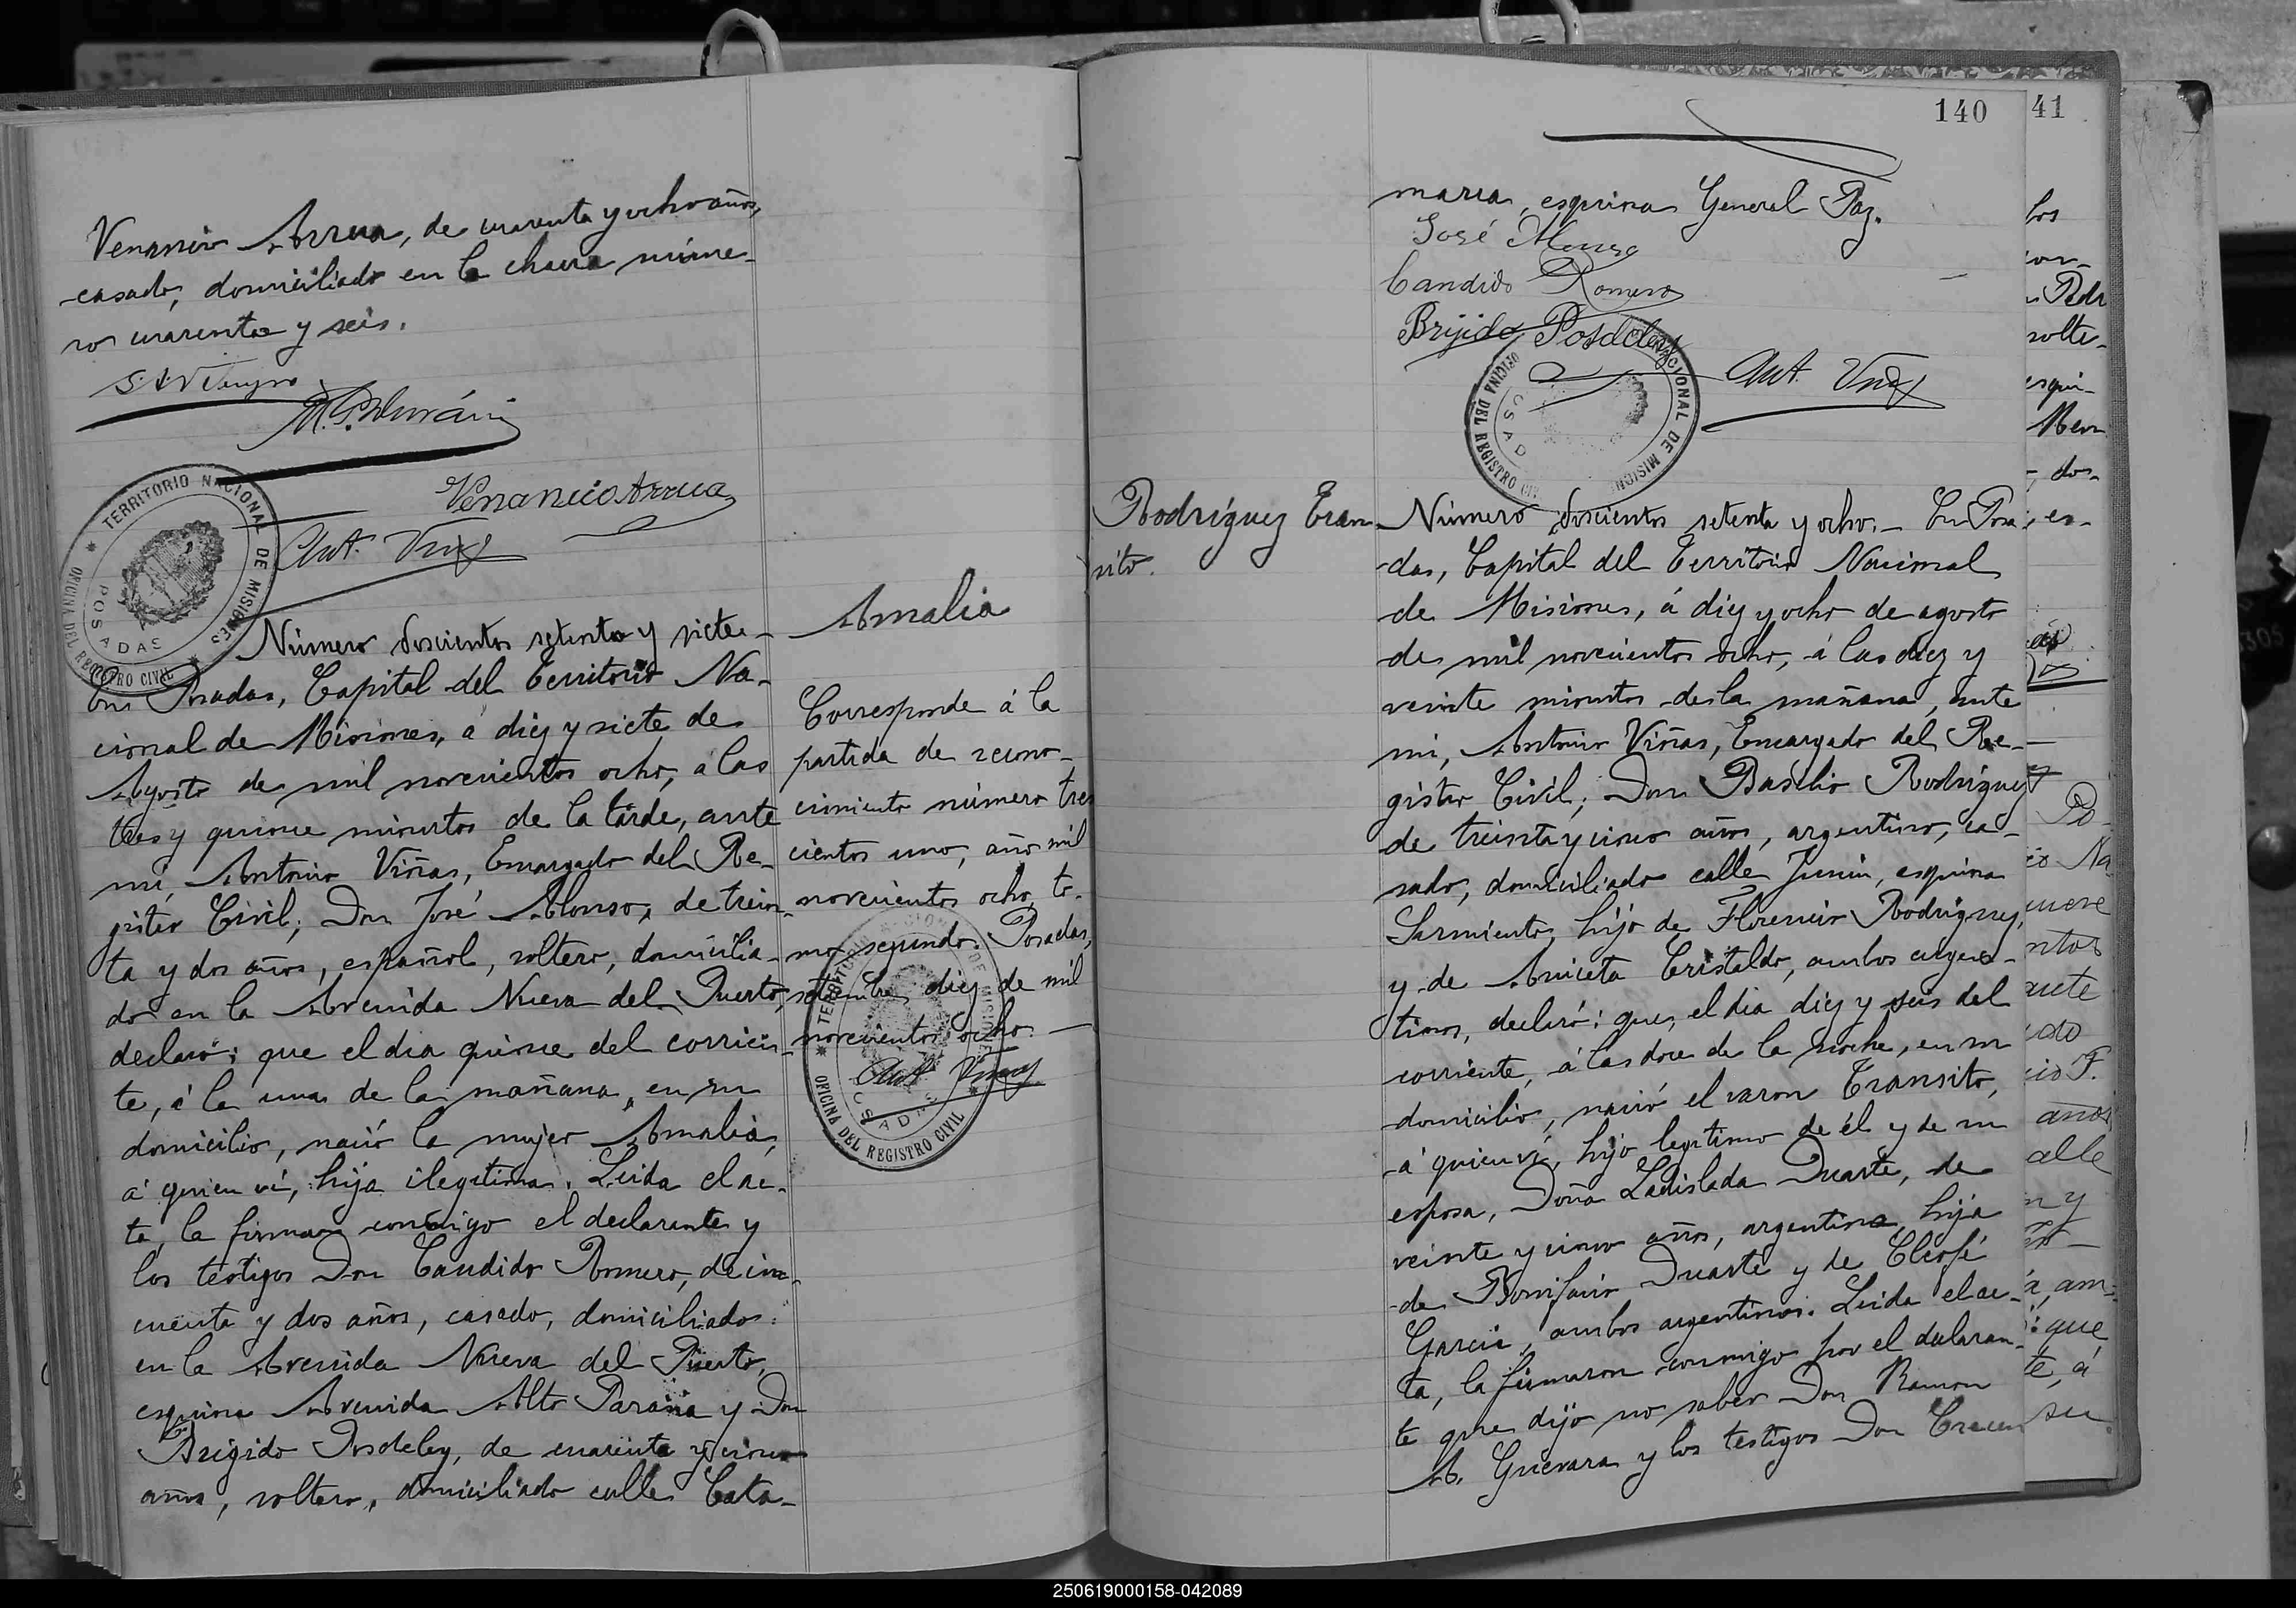 Venancio Arrua, de cuarenta y ocho años,
casado, domiciliado en la chacra núme-
ro cuarenta y seis.
Venancio Arrua
Ant. Viñas
TERRITORIO NACIONAL DE MISIONES
OFICINA DEL REGISTRO CIVIL
POSADAS
Número doscientos setenta y siete-
En Posadas, Capital del Territorio Na-
cional de Misiones, á diez y siete de
Agosto de mil novecientos ocho, á las
tres y quince minutos de la tarde, ante
mi, Antonio Viñas, Encargado del Re-
gistro Civil; Don José Alonso, de trein-
ta y dos años, español, soltero, domicilia-
do en la Avenida Nueva del Puerto,
declaró: que el dia quince del corrien-
te, á la una de la mañana, en su
domicilio, nació la mujer Amalia,
á quien ví, hija ilegitima. Leida el ac-
ta, la firmaron conmigo el declarante y
los testigos Don Candido Romero, de cin-
cuenta y dos años, casado, domiciliado
en la Avenida Nueva del Puerto,
esquina Avenida Alto Paraná y Don
Brigido Posdeley, de cuarenta y cinco
años, soltero, domiciliado calle Cata-
Amalia
Corresponde á la
partida de recono-
cimiento número tres
cientos uno, año mil
novecientos ocho, to-
mo segundo. Posadas,
setiembre diez de mil
novecientos ocho.
Ant. Viñas
TERRITORIO NACIONAL DE MISIONES
OFICINA DEL REGISTRO CIVIL
POSADAS
140
marca, esquina General Paz.
José Alonso
Candido Romero
Brijido Posdeley
Ant. Viñas
OFICINA DEL REGISTRO CIVIL
Rodríguez Tran-
sito.
Número doscientos setenta y ocho.- En Posa-
das, Capital del Territorio Nacional
de Misiones, á diez y ocho de agosto
de mil novecientos ocho, á las diez y
veinte minutos de la mañana, ante
mi, Antonio Viñas, Encargado del Re-
gistro Civil; Don Basilio Rodriguez
de treinta y cinco años, argentino, ca-
sado, domiciliado calle Junin, esquina
Sarmiento, hijo de Florencio Rodriguez,
y de Aniceta Cristaldo, ambos argen-
tinos, declaró: que, el dia diez y seis del
corriente, á las doce de la noche, en su
domicilio, nació el varon Transito,
á quien ví, hijo legitimo de él y de su
esposa, Doña Ladislada Duarte, de
veinte y cinco años, argentina, hija
de Bonifacio Duarte y de Cleofé
Garcia, ambos argentinos. Leida el ac-
ta, la firmaron conmigo por el declaran-
te que dijo no saber Don Ramon
A. Guevara y los testigos Don Crecen
41
los
Pedr
solte-
esqui-
do-
Po-
Na
ante
años
alle
que
te, á
su